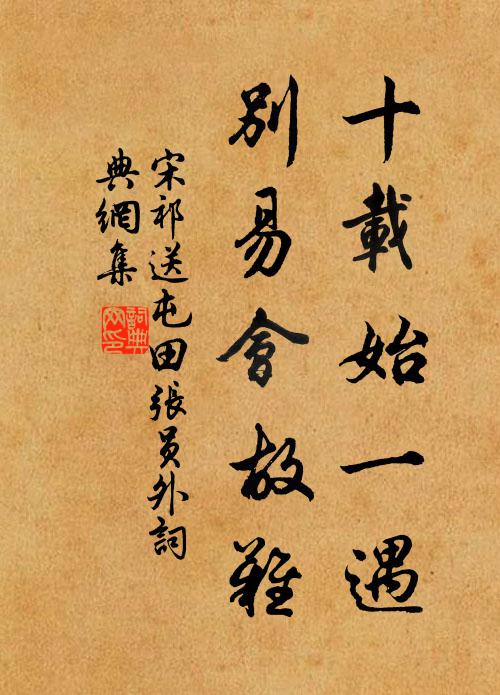 十載始一遇
別易會故難
宋祁送屯田張員外詞
典網集
詞典網印